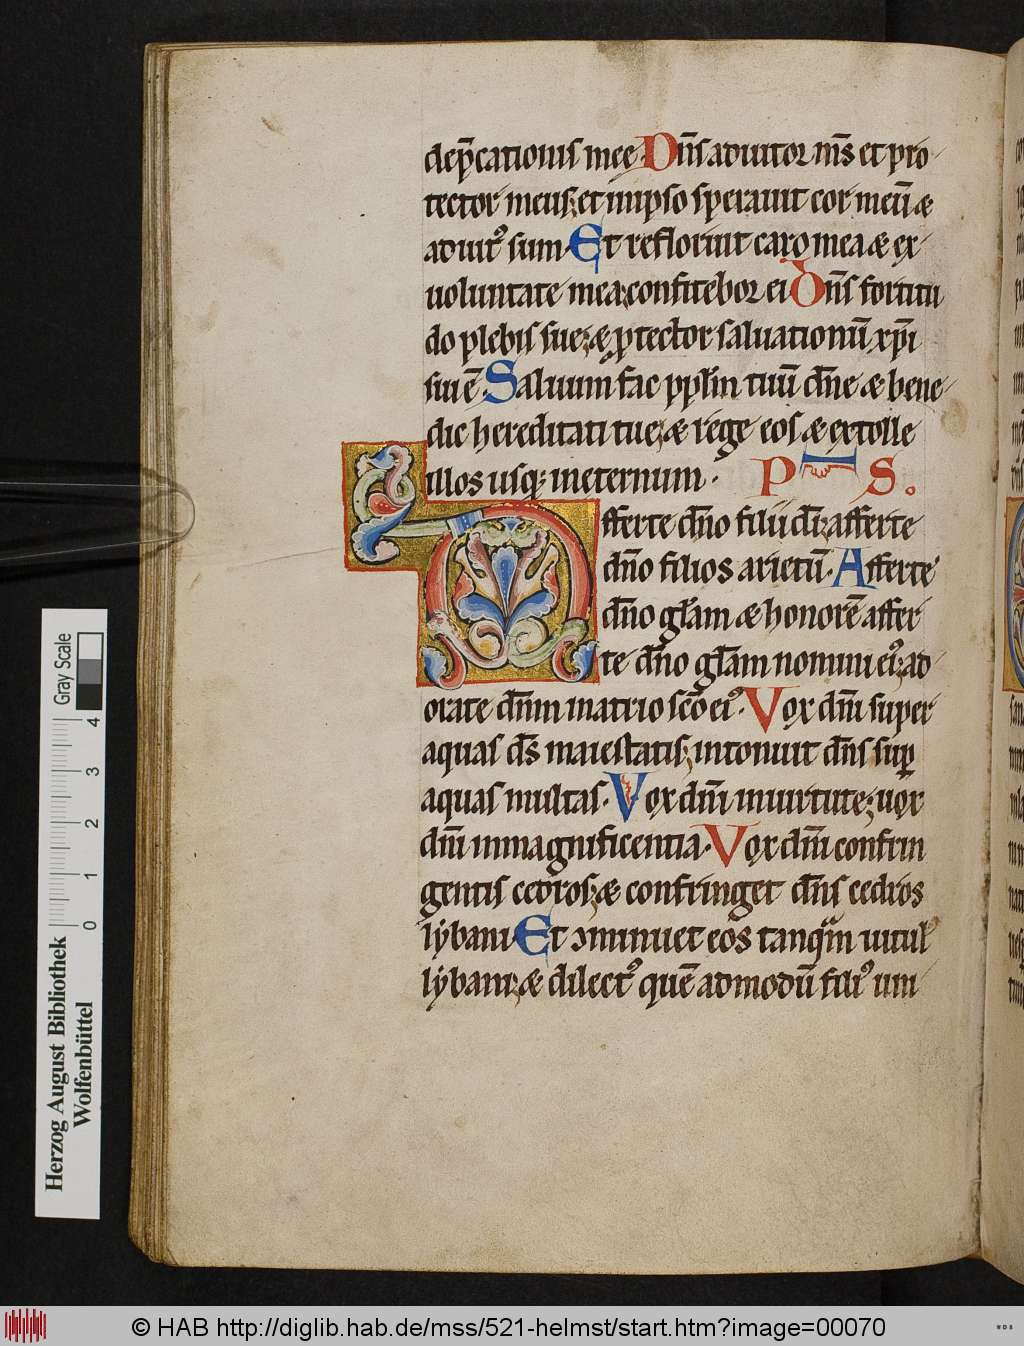 dep̄cationis mee Dn̄s adiutor m̄s et pro-
tector meus; et in ipso sperauit cor meū &
adiutꝰ sum. Et refloruit caro mea & ex
uoluntate mea; confitebor ei Dn̄s fortitu
do plebis sue; & ꝓtector saluationū xp̄i
sui ē. Saluum fac pplm̄ tuū dn̄e & bene-
dic hereditati tue; & rege eos & extolle
illos usq; in eternum. P S.
Afferte dn̄o filii di; afferte
dn̄o filios arietū. Afferte
dn̄o glām & honorē affer
te dn̄o glām nomini eiꝰ; ad
orate dn̄m in atrio scō eiꝰ. Vox dn̄i super
aquas ds̄ maiestatis; intonuit dn̄s sup̄
aquas multas. Vox dn̄i in uirtute; uox
dn̄i in magnificentia. Vox dn̄i confrin
gentis cedros; & confringet dn̄s cedros
lybani. Et ɔminuet eos tanqm̄ uitul
lybani; & dilectꝰ quēadmodū filiꝰ uni
Herzog August Bibliothek
Wolfenbüttel
0 1 2 3 4
Gray Scale
© HAB http://diglib.hab.de/mss/521-helmst/start.htm?image=00070